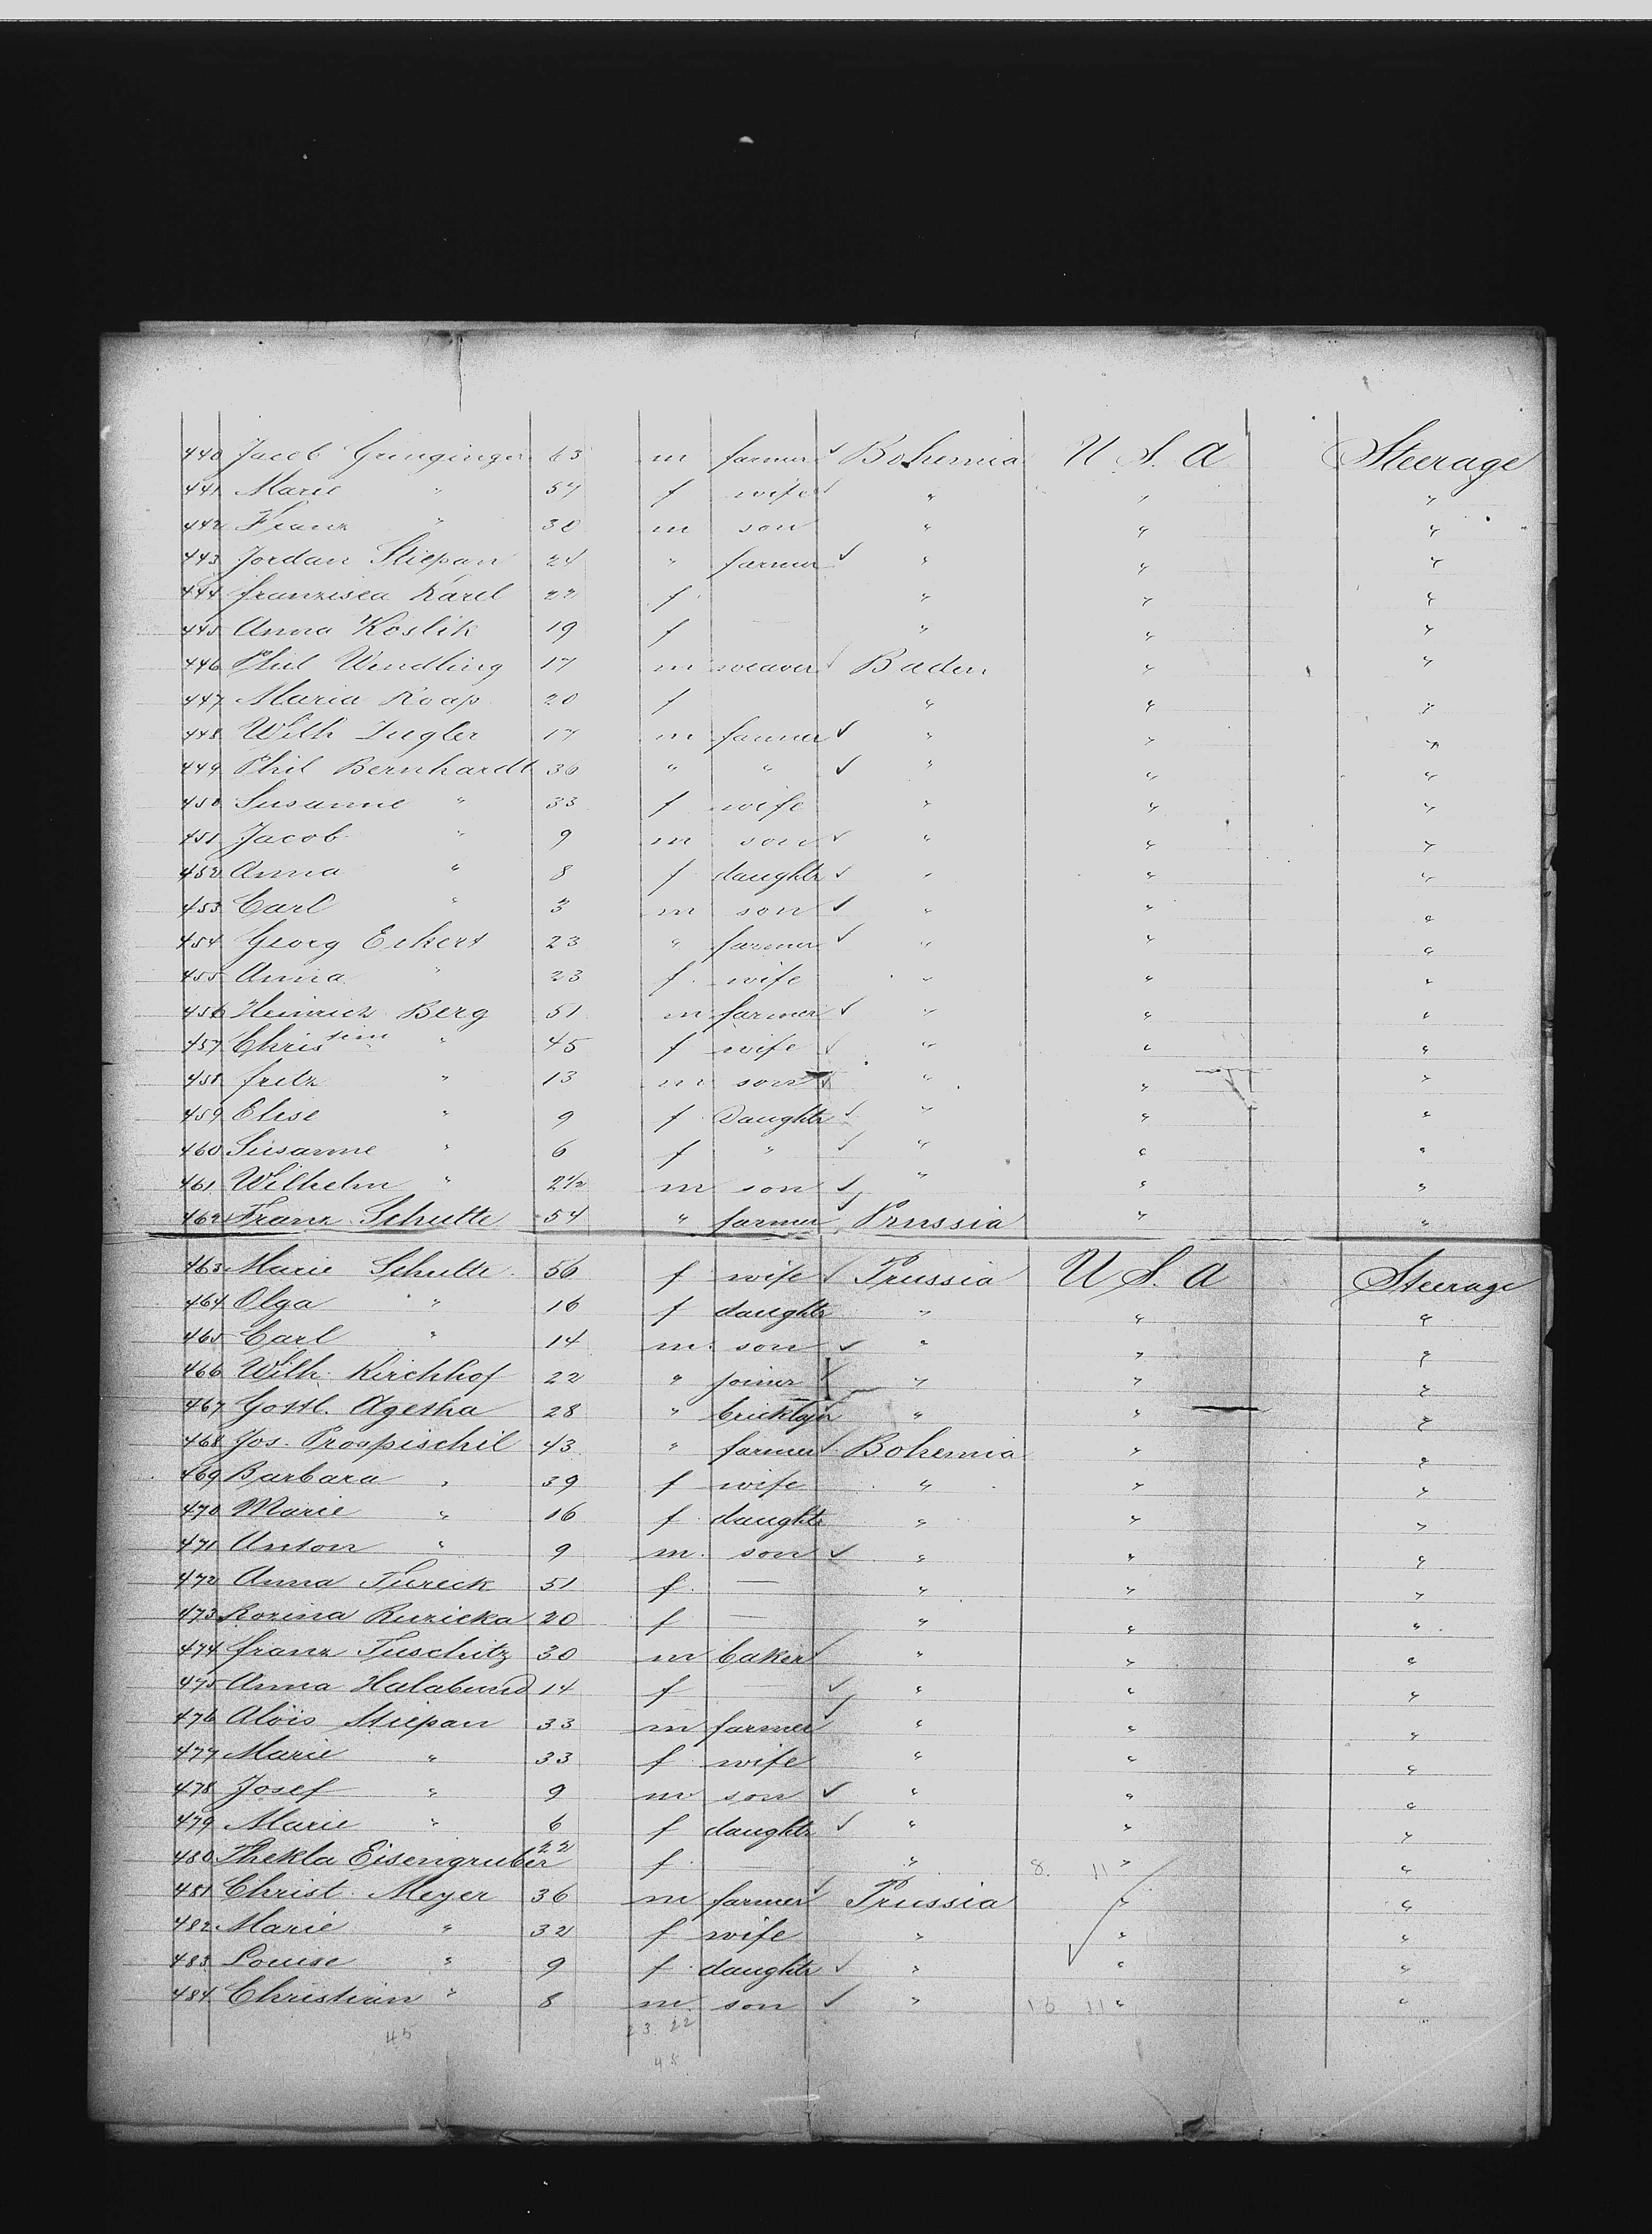 440 Jacob Gringinger 63 m farmer Bohemia U S. A Steerage
441 Marie " 57 f wife " " "
442 Franz " 30 m son " " "
443 Jordan Stiepan 24 " farmer " " "
444 franzisca Karel 22 f " " "
445 Anna Koslik 19 f — " " "
446 Phil Wendling 17 m weaver Baden " "
447 Maria Koap 20 f " " "
448 Wilh Jugler 17 m farmer " " "
449 Phil Bernhardt 36 " " " " "
450 Susanne " 33 f wife " " "
451 Jacob " 9 m son " " "
452 Anna " 8 f daughtr " " "
453 Carl " 3 m son " " "
454 Georg Eckert 23 " farmer " " "
455 Anna " 23 f. wife " " "
456 Heinrich Berg 51 m farmer " " "
457 Christine " 45 f wife " " "
458 fritz " 13 m son " " "
459 Elise " 9 f Daughtr " " "
460 Susanne " 6 f " " " "
461 Wilhelm " 2 1/2 m son " " "
462 Franz Schulte 54 " farmer Prussia " "
463 Marie Schulte 56 f wife Prussia U S. A Steerage
464 Olga " 16 f daughtr " " "
465 Carl " 14 m. son " " "
466 Wilh. Kirchhof 22 " joiner " " "
467 Gottl. Agetha 28 " bricklayer " " "
468 Jos. Prospischil 43 " farmer Bohemia " "
469 Barbara " 39 f wife " " "
470 Marie " 16 f. daughtr " " "
471 Anton " 9 m. son " " "
472 Anna Tureck 51 f. — " " "
473 Rozina Ruzicka 20 f — " " "
474 franz Tuschitz 30 m baker " " "
475 Anna 14 f — " " "
476 Alois Stiepan 33 m farmer " " "
477 Marie " 33 f. wife " " "
478 Josef " 9 m son " " "
479 Marie " 6 f daughtr " " "
480 Thekla Eisengruber 22 f. — " 8. 11 " "
481 Christ. Meyer 36 m farmer Prussia " "
482 Marie " 32 f wife " " "
483 Louise " 9 f. daughtr " " "
484 Christian " 8 m. son " 16 11 " "
45 23. 22
45